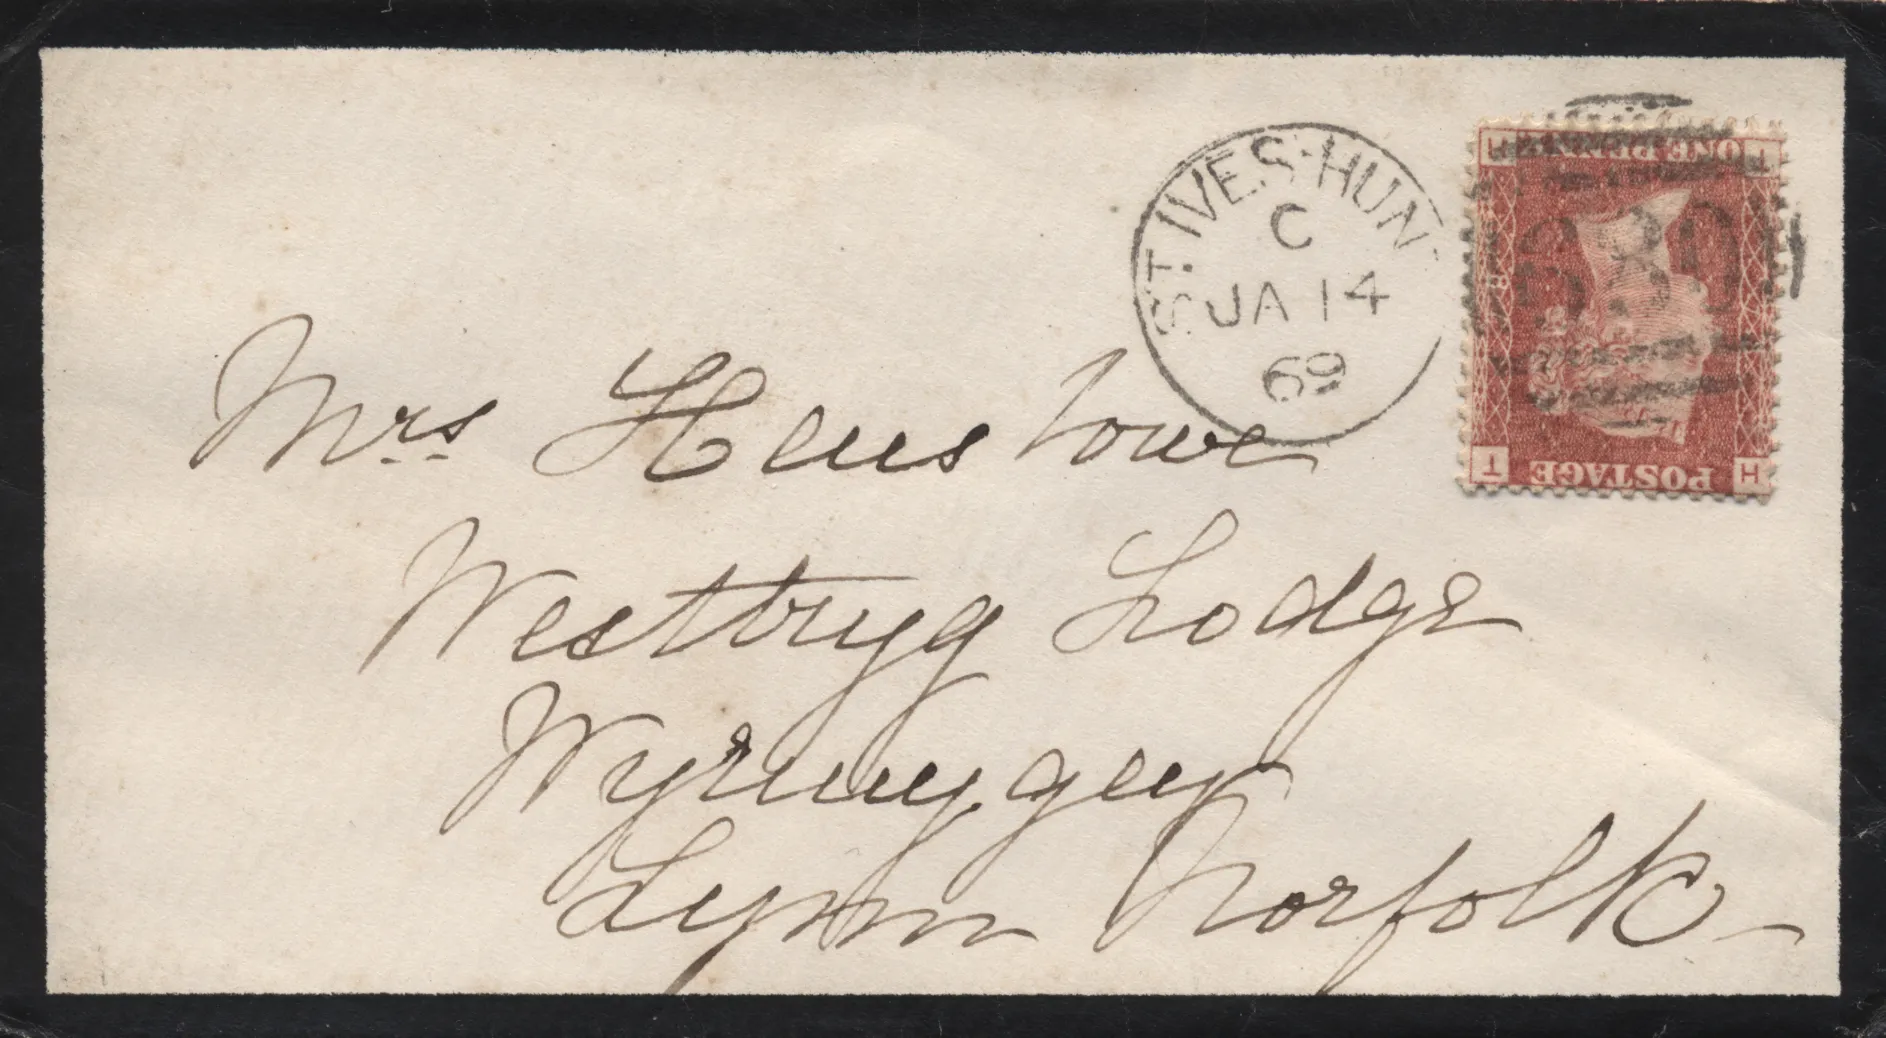 ST. IVES·HUN
C
JA 14
69
ONE PENNY
POSTAGE
T
H
Mrs Henslowe
Westbryg Lodge
Lynn Norfolk